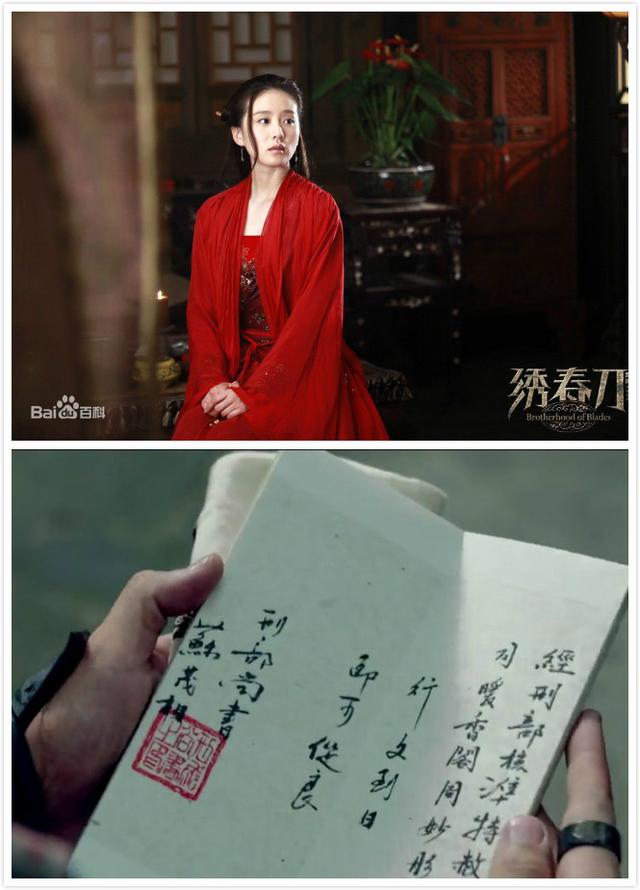 Baidu百科
绣春刀
Brotherhood of Blades
經刑部核準特赦
司暖香閣周妙彤
行文到日
即可從良
刑部尚書
蘇茂相